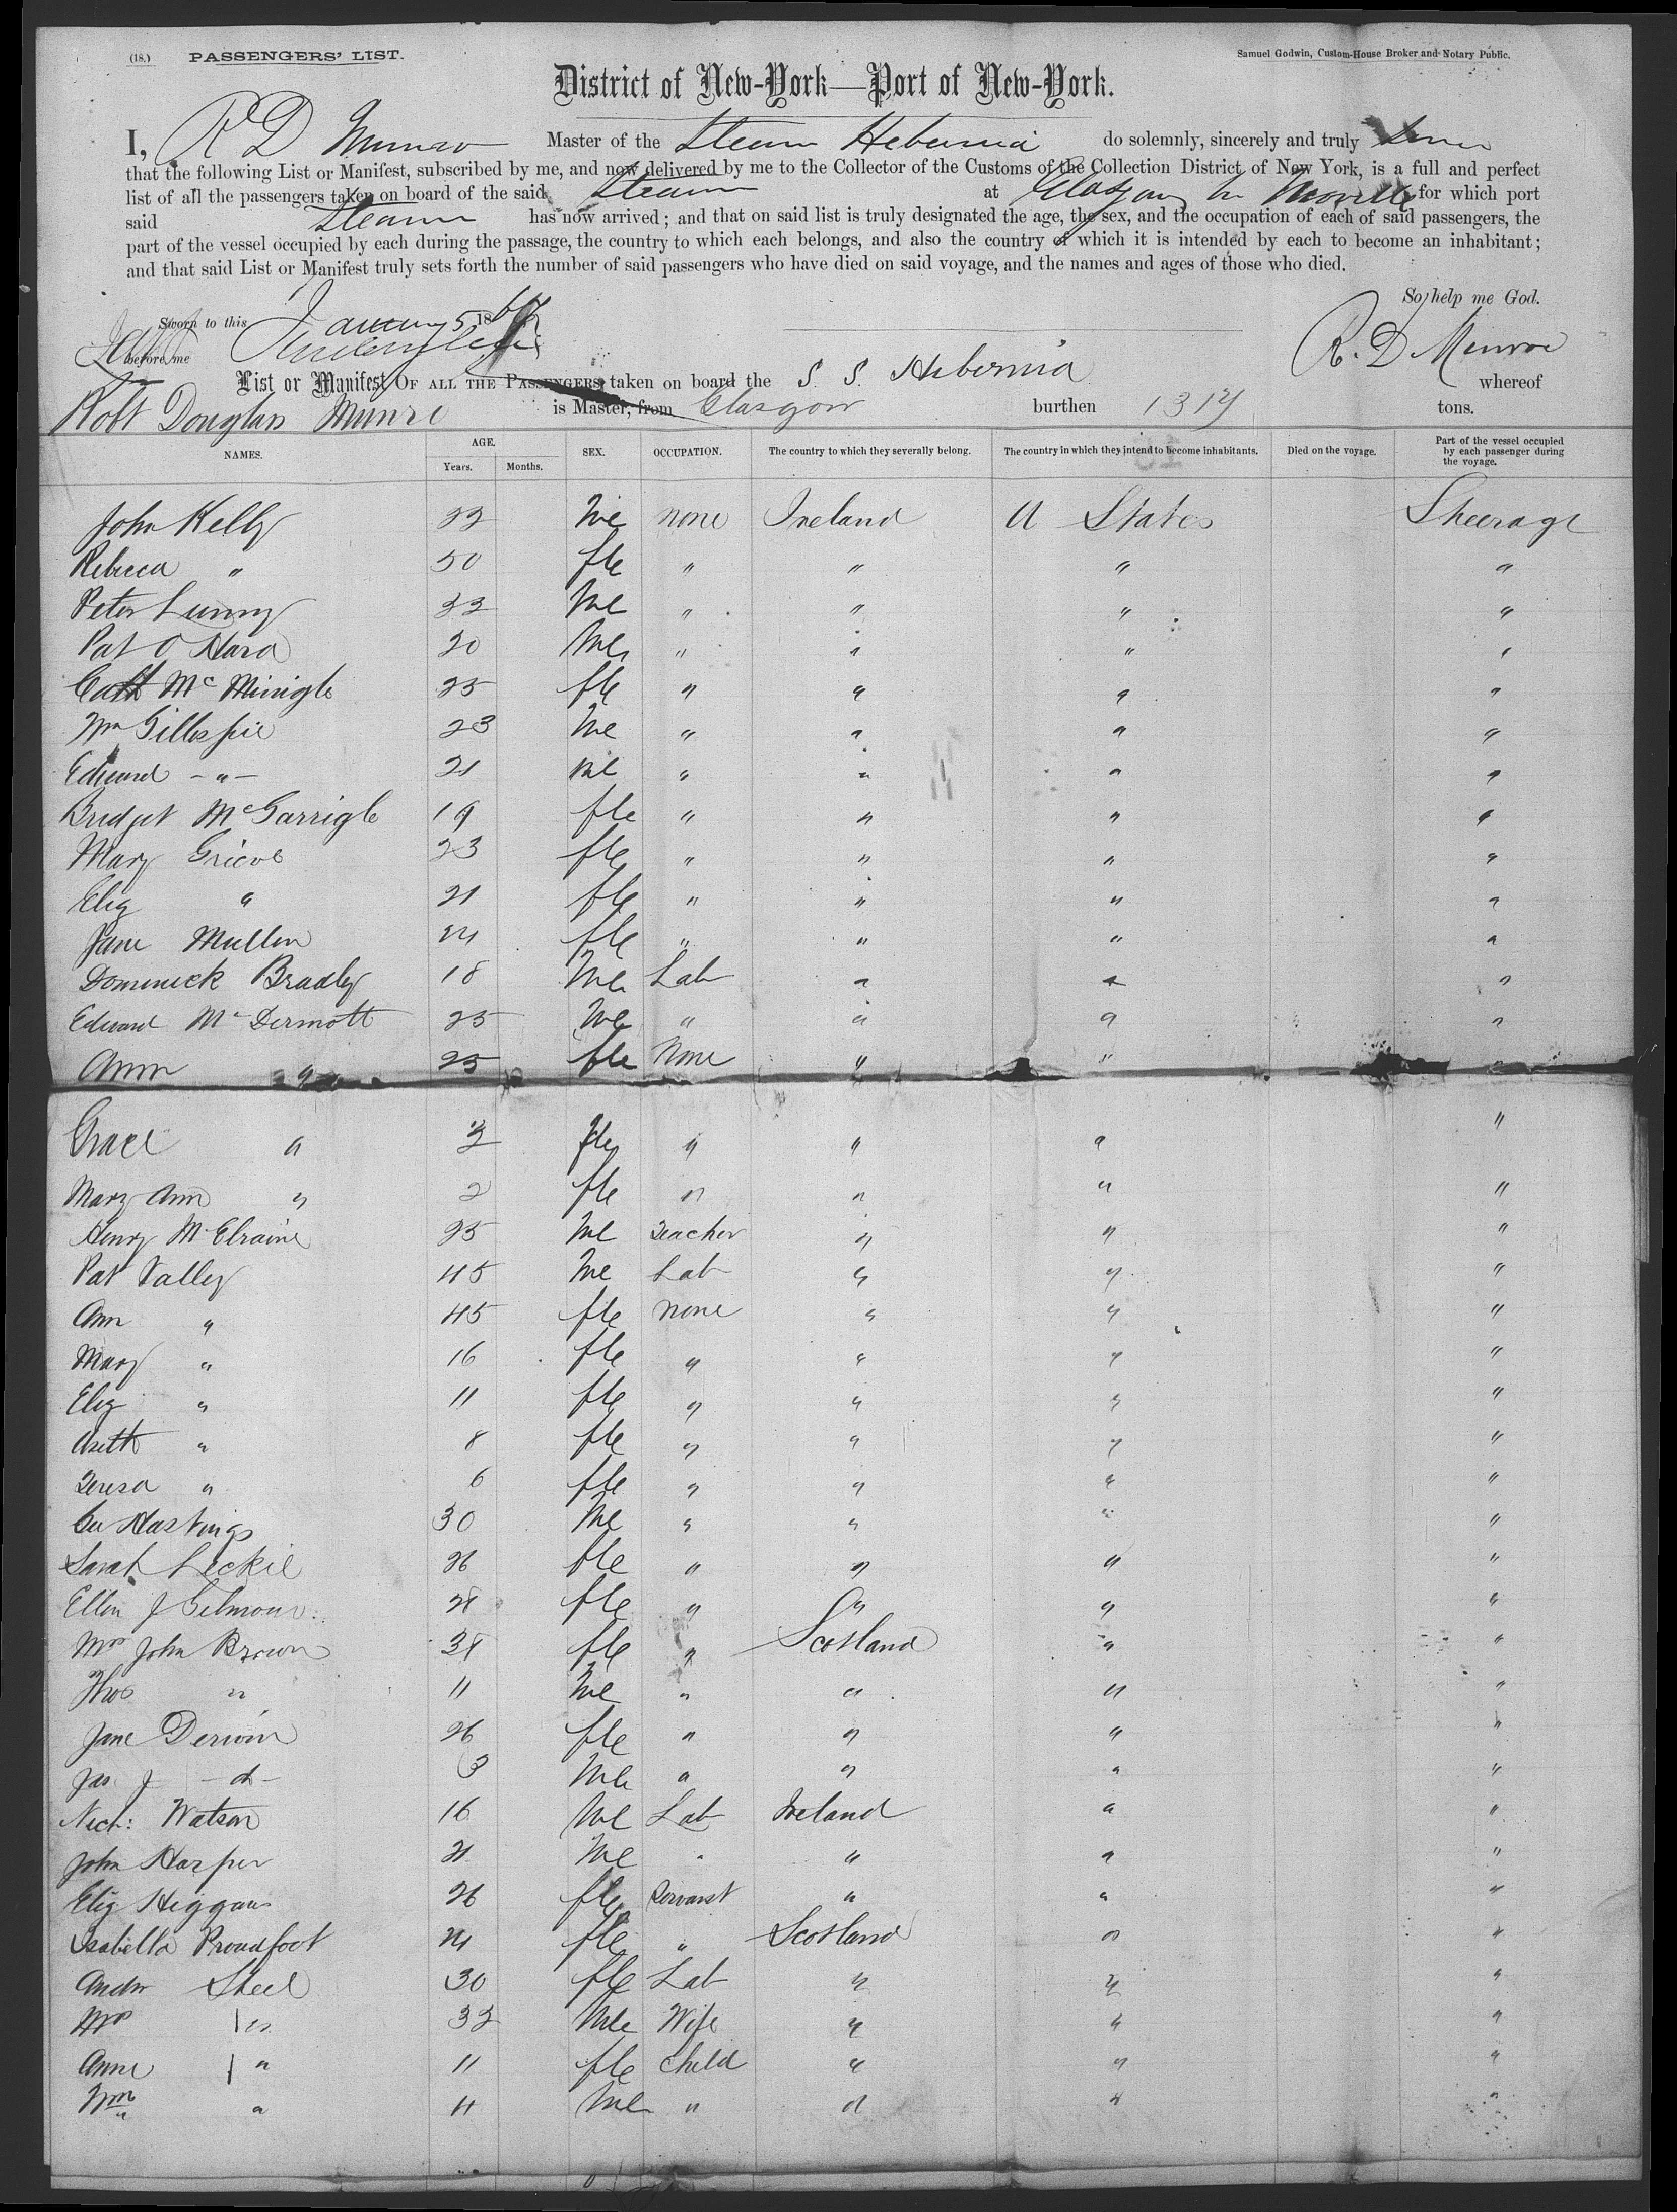 (18.) PASSENGERS' LIST. Samuel Godwin, Custom-House Broker and Notary Public.
District of New-York—Port of New-York.
I, R D Munro Master of the Steam Hebernia do solemnly, sincerely and truly
that the following List or Manifest, subscribed by me, and now delivered by me to the Collector of the Customs of the Collection District of New York, is a full and perfect
list of all the passengers taken on board of the said Steam at Glasgow Moville for which port
said Steam has now arrived; and that on said list is truly designated the age, the sex, and the occupation of each of said passengers, the
part of the vessel occupied by each during the passage, the country to which each belongs, and also the country of which it is intended by each to become an inhabitant;
and that said List or Manifest truly sets forth the number of said passengers who have died on said voyage, and the names and ages of those who died.
So help me God.
Sworn to this January 5 18
before me R. D Munroe
List or Manifest OF ALL THE PASSENGERS taken on board the S. S. Hibernia whereof
Robt Douglas Munro is Master, from Glasgow burthen 1317 tons.
NAMES. AGE. Years. Months. SEX. OCCUPATION. The country to which they severally belong. The country in which they intend to become inhabitants. Died on the voyage. Part of the vessel occupied by each passenger during the voyage.
John Kelly 22 Me none Ireland U States Steerage
Rebecca " 50 fle " " " "
Peter Lunny 22 Me " " " "
Pat O Hara 20 Me " " " "
Cath Mc Minigle 25 fle " " " "
Wm Gillespie 23 Me " " " "
Edward - " - 21 Me " " " "
Bridget McGarrigle 19 fle " " " "
Mary Grieve 23 fle " " " "
Eliz " 21 fle " " " "
Jane Mullen fle " " " "
Dominick Bradley 18 Me Lab " " "
Edward Mc Dermott 25 Me " " " "
Ann " 25 fle None " " "
Grace " 3 fle " " " "
Mary Ann " 2 fle " " " "
Henry McElraine 25 Me Teacher " " "
Pat Valley 45 Me Lab " " "
Ann " 45 fle none " " "
Mary " 16 fle " " " "
Eliz " 11 fle " " " "
" 8 fle " " " "
Teresa " 6 fle " " " "
Hastings 30 Me " " " "
Sarah Leckie 26 fle " " " "
Ellen J Gilmour fle " " " "
Mrs John Brown fle " Scotland " "
Thos " 11 Me " " " "
Jane Derwin 26 fle " " " "
Jas J - do - 3 Me " " " "
Nich: Watson 16 Me Lab Ireland " "
John Harper 21 Me " " " "
Eliz Higgans 26 fle Servant " " "
Isabella Proudfoot 21 fle " Scotland " "
Andw Steel 30 fle Lab " " "
Mrs " 32 Me Wife " " "
Anne " 11 fle child " " "
Wm " 4 Me " " " "